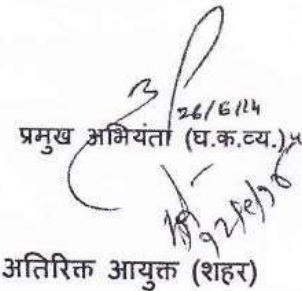 26/6/24
प्रमुख अभियंता (घ.क.व्य.)
अतिरिक्त आयुक्त (शहर)